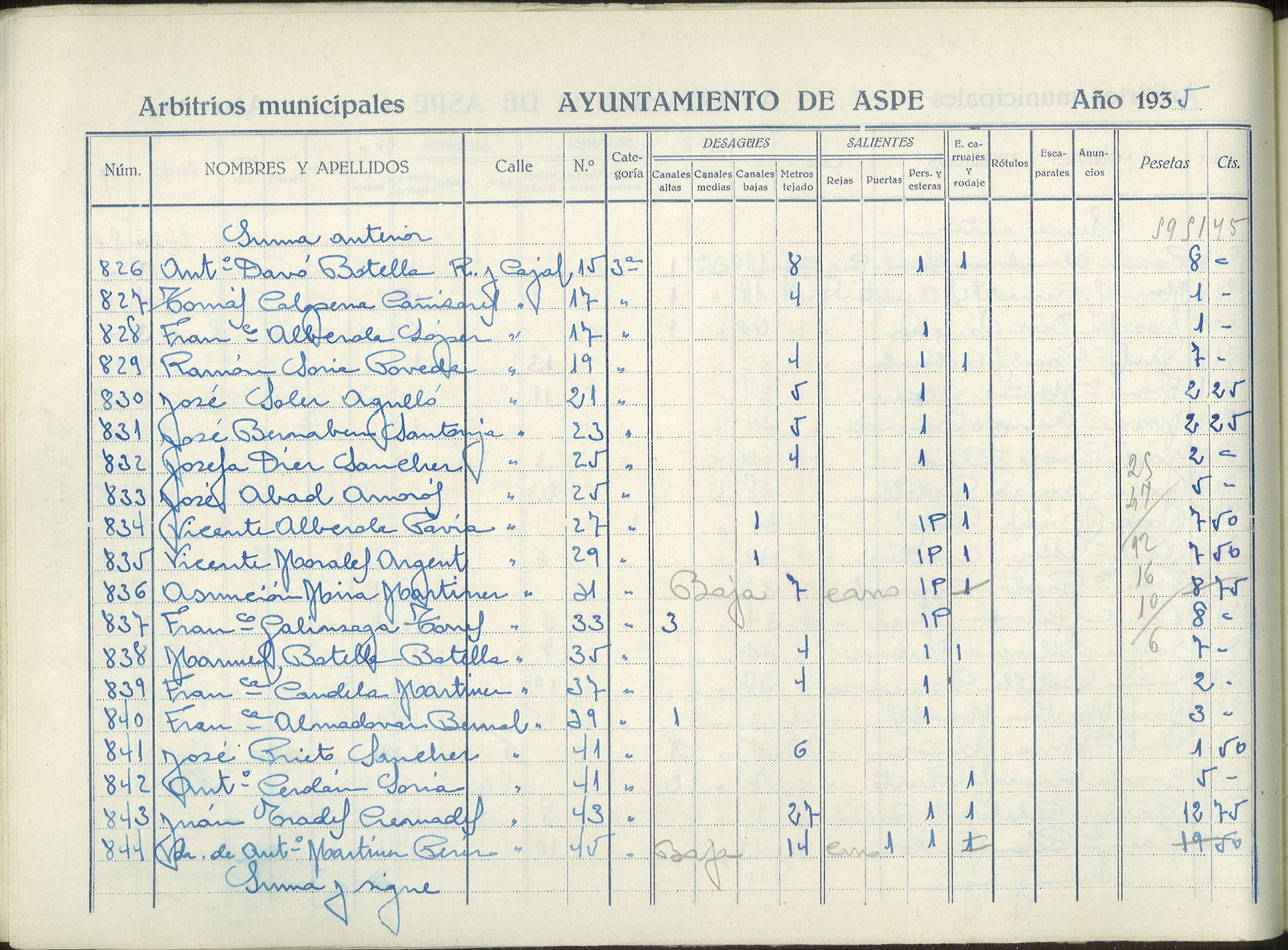 Arbitrios municipales AYUNTAMIENTO DE ASPE Año 1935
Núm. NOMBRES Y APELLIDOS Calle N.º Cate-goría DESAGÜES Canales altas Canales medias Canales bajas Metros tejado SALIENTES Rejas Puertas Pers. y esteras E. ca-rruajes y rodaje Rótulos Esca-parates Anun-cios Pesetas Cts.
Suma anterior 5951 45
826 Antº Davó Botella R. y Cajal, 15 3ª 8 1 1 8 =
827 Tomás Calpena Cañizares " 17 " 4 1 -
828 Franco Alberola López " 17 " 1 1 -
829 Ramón Soria Poveda " 19 " 4 1 1 7 -
830 José Soler Agulló 21 " 5 1 2 25
831 José Bernabeu Santonja " 23 " 5 1 2 25
832 Josefa Dier Sancher " 25 " 4 1 2 =
25
833 José Abad Amorós " 25 " 1 5 -
47
834 Vicente Alberola Pavía " 27 " 1 1P 1 7 50
835 Vicente Morales Argent " 29 " 1 1P 1 7 50
12
836 Asunción Mira Martiner " 31 " Baja 7 cano 1P 1 8 75
16
837 Franco Galinsoga Torres " 33 " 3 1P 8 =
10
838 Manuel Botella Botella " 35 " 4 1 1 7 -
6
839 Franca Candela Martiner " 37 " 4 1 2 -
840 Franca Almodovar Bernal " 39 " 1 1 3 "
841 José Prieto Sancher " 41 " 6 1 50
842 Antº Cerdán Soria " 41 " 1 5 -
843 Juán Prades Cremades " 43 " 27 1 1 12 75
844 Vda. de Antº Martiner Perer " 45 " Baja 14 cano 1 1 1 19 50
Suma y sigue